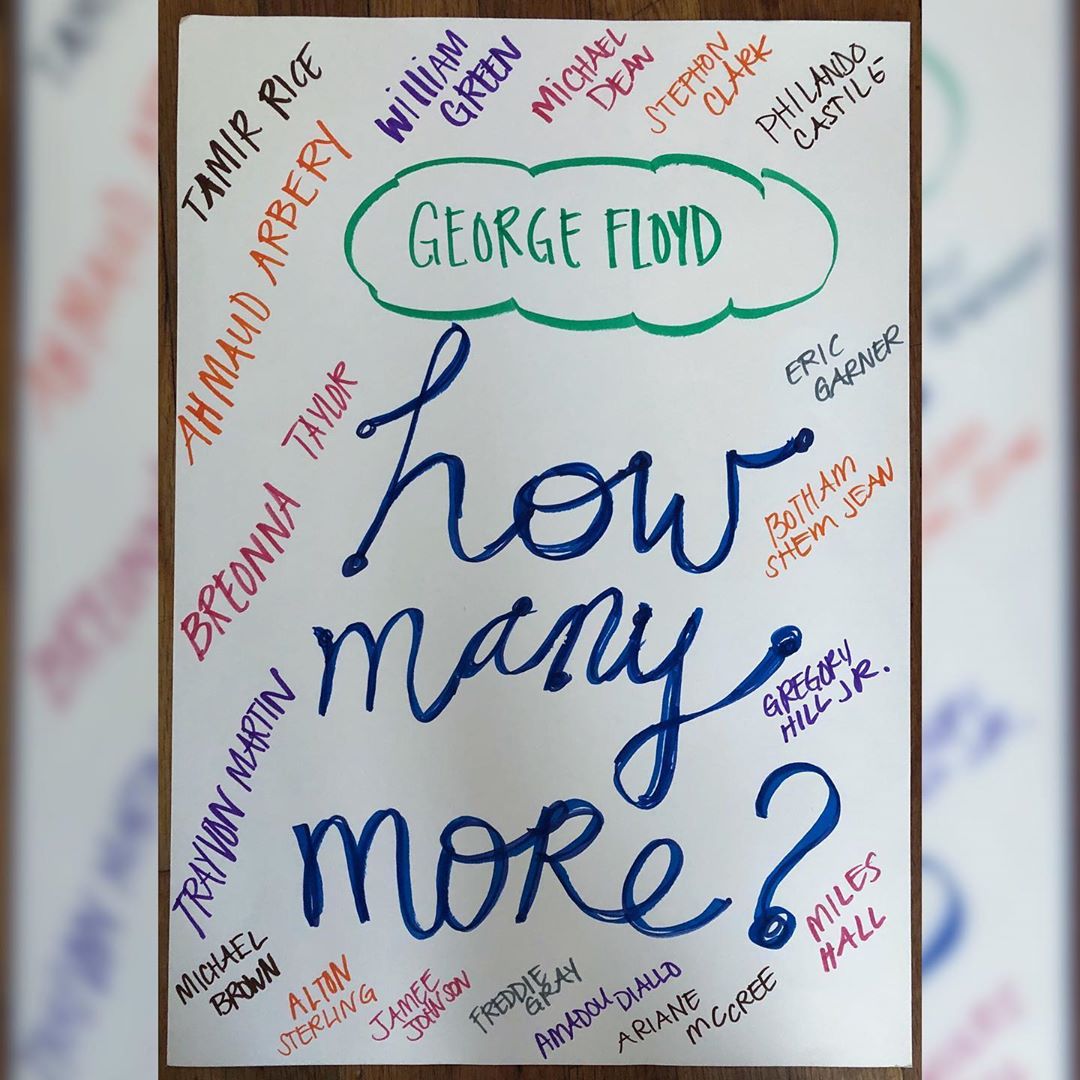 TAMIR RICE
WILLIAM
GREEN
MICHAEL
DEAN
STEPHON
CLARK
PHILANDO
CASTILE
AHMAUD ARBERY
GEORGE FLOYD
ERIC
GARNER
BREONNA TAYLOR
how
BOTHAM
SHEM JEAN
many
GREGORY
HILL JR.
TRAYVON MARTIN
MORe?
MILES
HALL
MICHAEL
BROWN
ALTON
STERLING
JAMEE
JOHNSON
FREDDIE
GRAY
AMADOU DIALLO
ARIANE
MCCREE